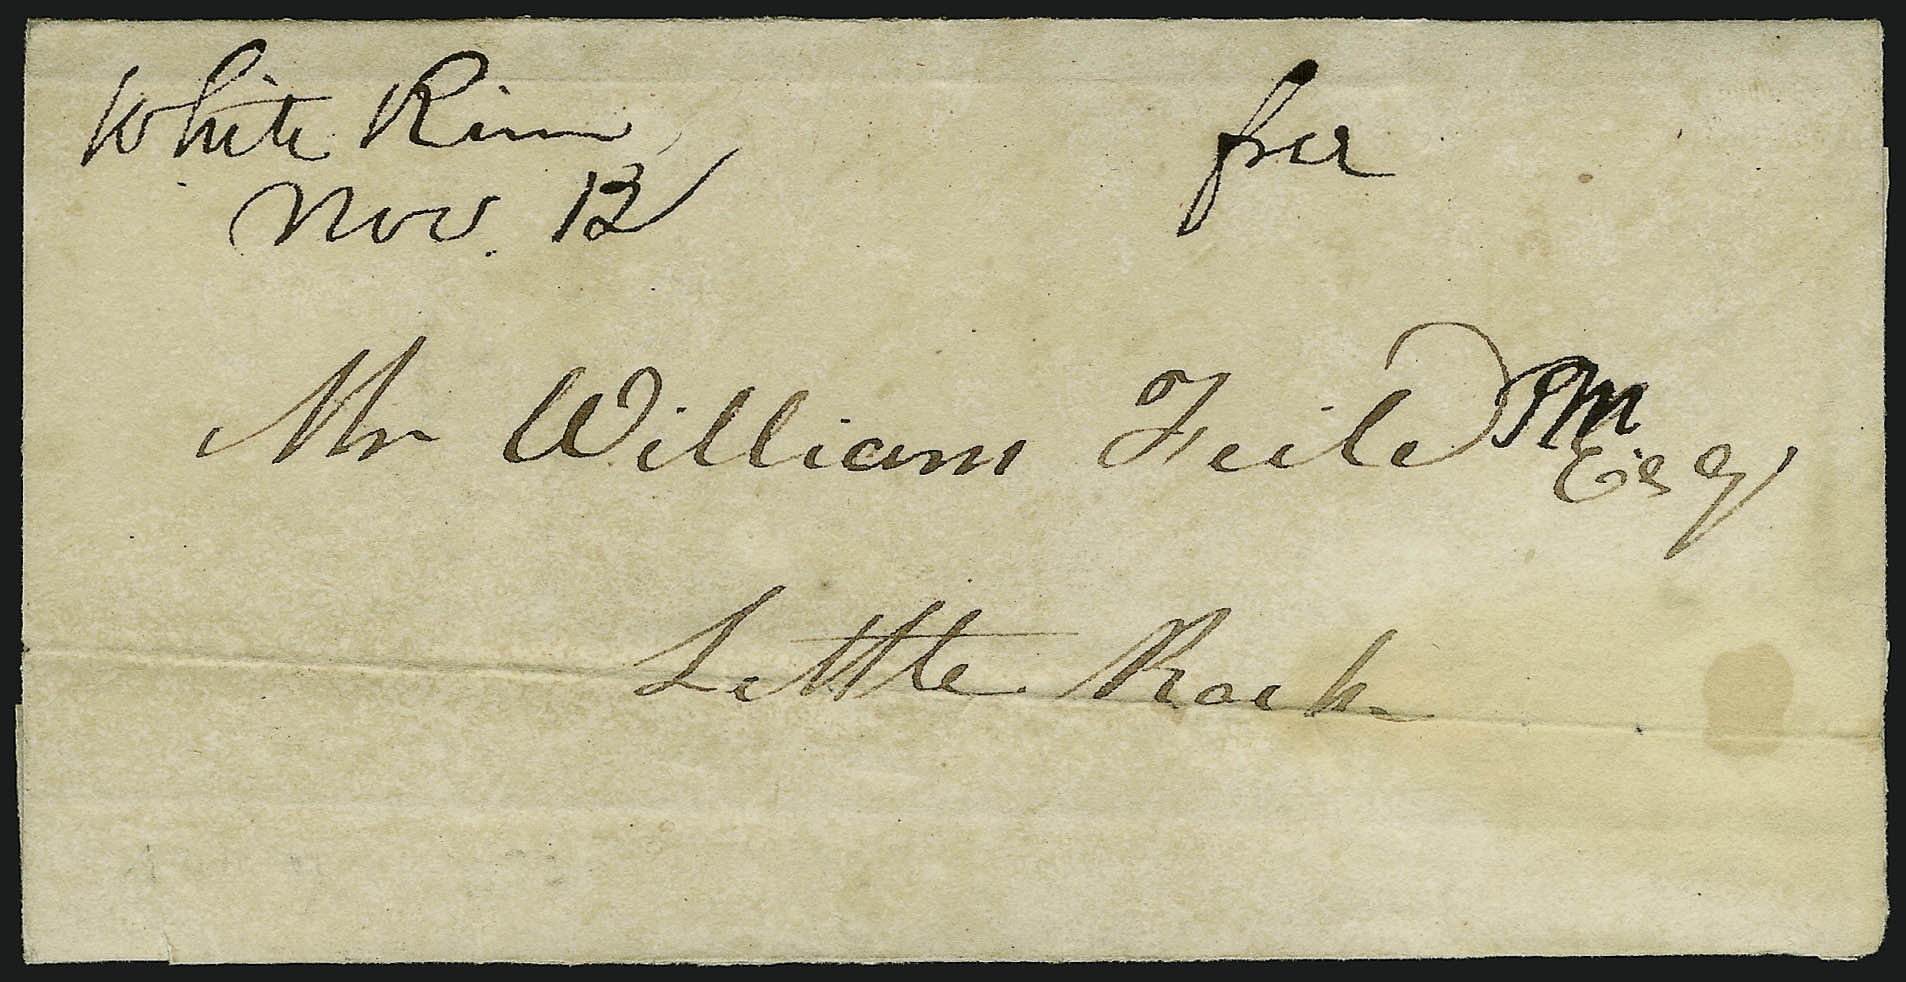 White River
Nov. 13
free
Mr William Feild PM
Esq
Little Rock